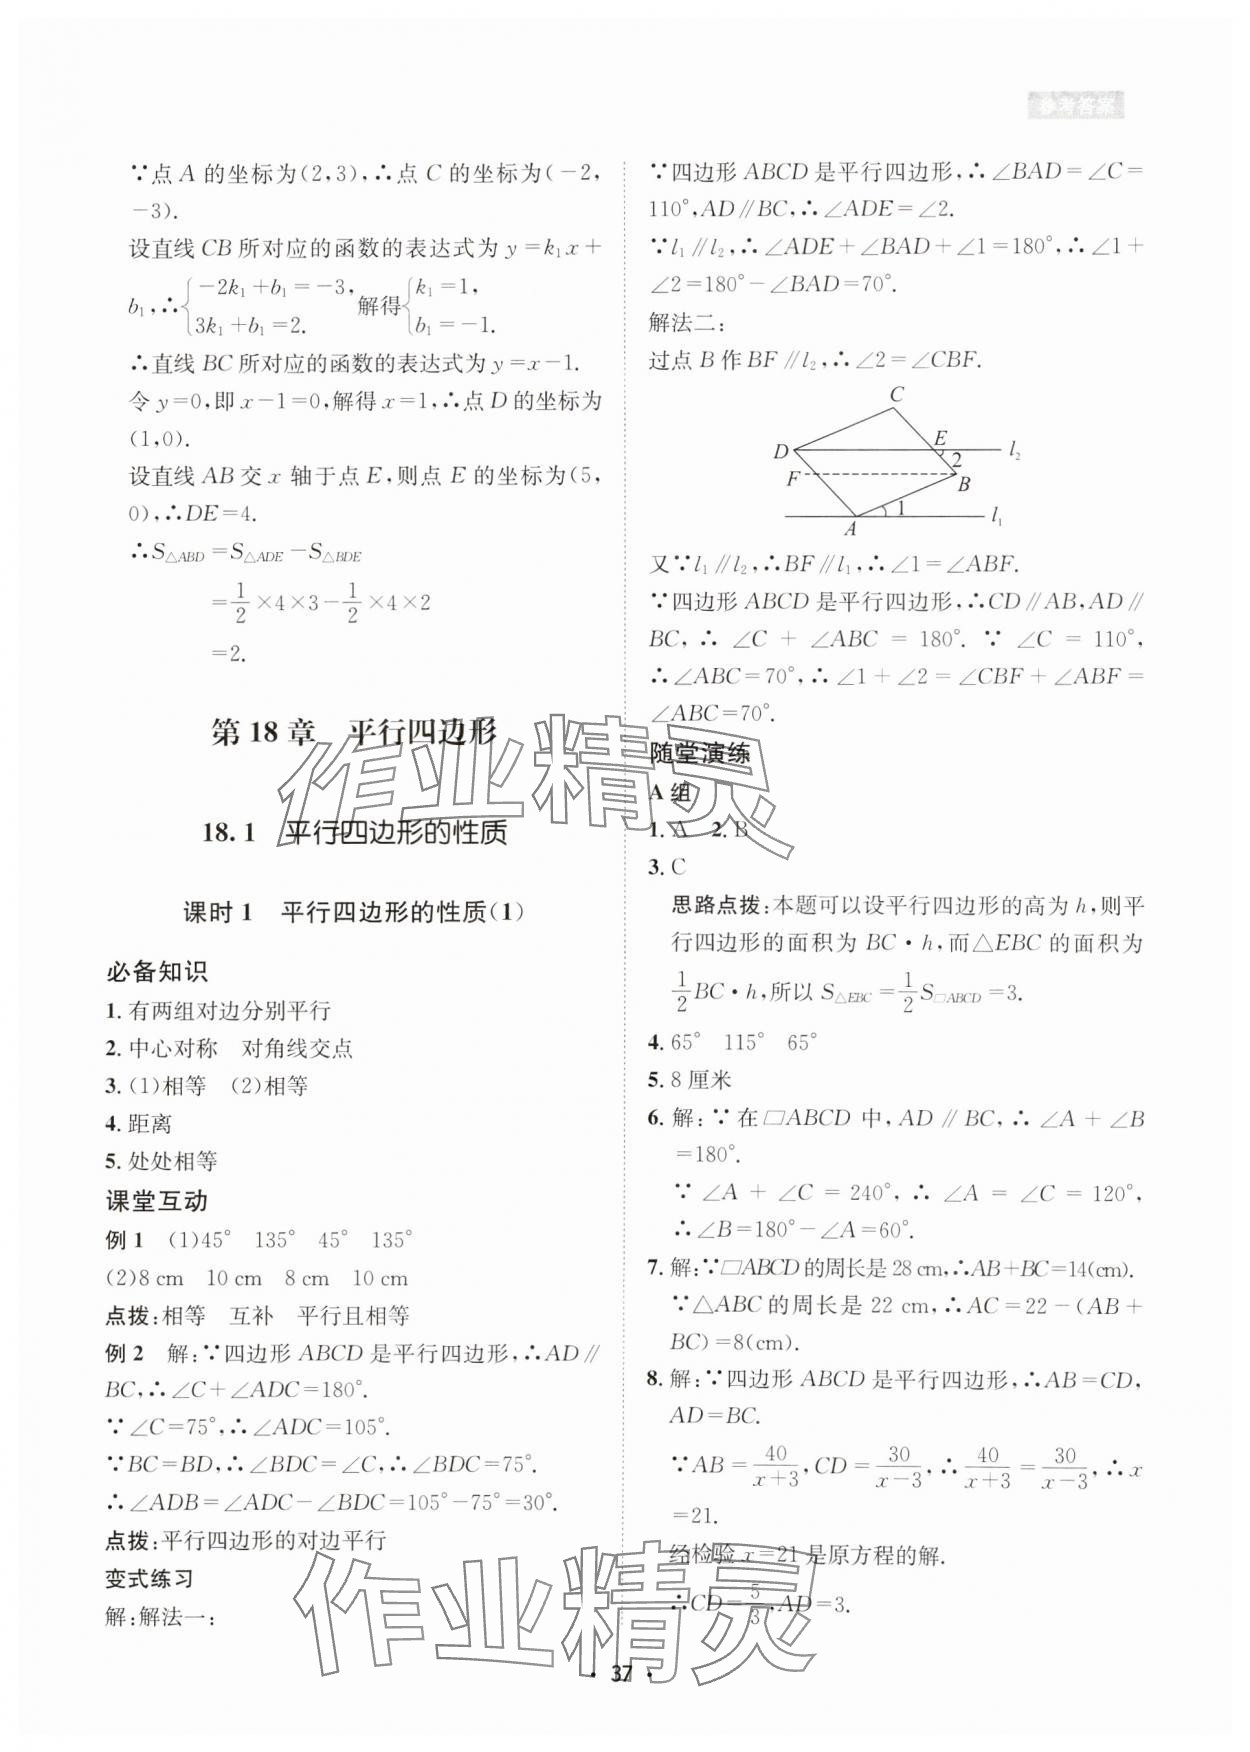 参考答案
∵点 A 的坐标为(2,3),∴点 C 的坐标为(-2,
-3).
设直线 CB 所对应的函数的表达式为 y=k₁x+
b₁,∴{-2k₁+b₁=-3, 3k₁+b₁=2. 解得{k₁=1, b₁=-1.
∴直线 BC 所对应的函数的表达式为 y=x-1.
令 y=0,即 x-1=0,解得 x=1,∴点 D 的坐标为
(1,0).
设直线 AB 交 x 轴于点 E,则点 E 的坐标为(5,
0),∴DE=4.
∴S△ABD=S△ADE-S△BDE
=1/2×4×3-1/2×4×2
=2.
第 18 章 平行四边形
18.1 平行四边形的性质
课时 1 平行四边形的性质(1)
必备知识
1. 有两组对边分别平行
2. 中心对称 对角线交点
3. (1)相等 (2)相等
4. 距离
5. 处处相等
课堂互动
例 1 (1)45° 135° 45° 135°
(2)8 cm 10 cm 8 cm 10 cm
点拨:相等 互补 平行且相等
例 2 解:∵四边形 ABCD 是平行四边形,∴AD∥
BC,∴∠C+∠ADC=180°.
∵∠C=75°,∴∠ADC=105°.
∵BC=BD,∴∠BDC=∠C,∴∠BDC=75°.
∴∠ADB=∠ADC-∠BDC=105°-75°=30°.
点拨:平行四边形的对边平行
变式练习
解:解法一:
∵四边形 ABCD 是平行四边形,∴∠BAD=∠C=
110°,AD∥BC,∴∠ADE=∠2.
∵l₁∥l₂,∴∠ADE+∠BAD+∠1=180°,∴∠1+
∠2=180°-∠BAD=70°.
解法二:
过点 B 作 BF∥l₂,∴∠2=∠CBF.
C
D E l₂
2
F B
1
A l₁
又∵l₁∥l₂,∴BF∥l₁,∴∠1=∠ABF.
∵四边形 ABCD 是平行四边形,∴CD∥AB,AD∥
BC,∴∠C+∠ABC=180°.∵∠C=110°,
∴∠ABC=70°,∴∠1+∠2=∠CBF+∠ABF=
∠ABC=70°.
随堂演练
A 组
1. A 2. B
3. C
思路点拨:本题可以设平行四边形的高为 h,则平
行四边形的面积为 BC·h,而△EBC 的面积为
1/2BC·h,所以 S△EBC=1/2S▱ABCD=3.
4. 65° 115° 65°
5. 8 厘米
6. 解:∵在▱ABCD 中,AD∥BC,∴∠A+∠B
=180°.
∵∠A+∠C=240°,∴∠A=∠C=120°,
∴∠B=180°-∠A=60°.
7. 解:∵▱ABCD的周长是 28 cm,∴AB+BC=14(cm).
∵△ABC 的周长是 22 cm,∴AC=22-(AB+
BC)=8(cm).
8. 解:∵四边形 ABCD 是平行四边形,∴AB=CD,
AD=BC.
∵AB=40/(x+3),CD=30/(x-3),∴40/(x+3)=30/(x-3),∴x
=21.
经检验 x=21 是原方程的解.
∴CD=5/3,AD=3.
作业精灵
作业精灵
· 37 ·